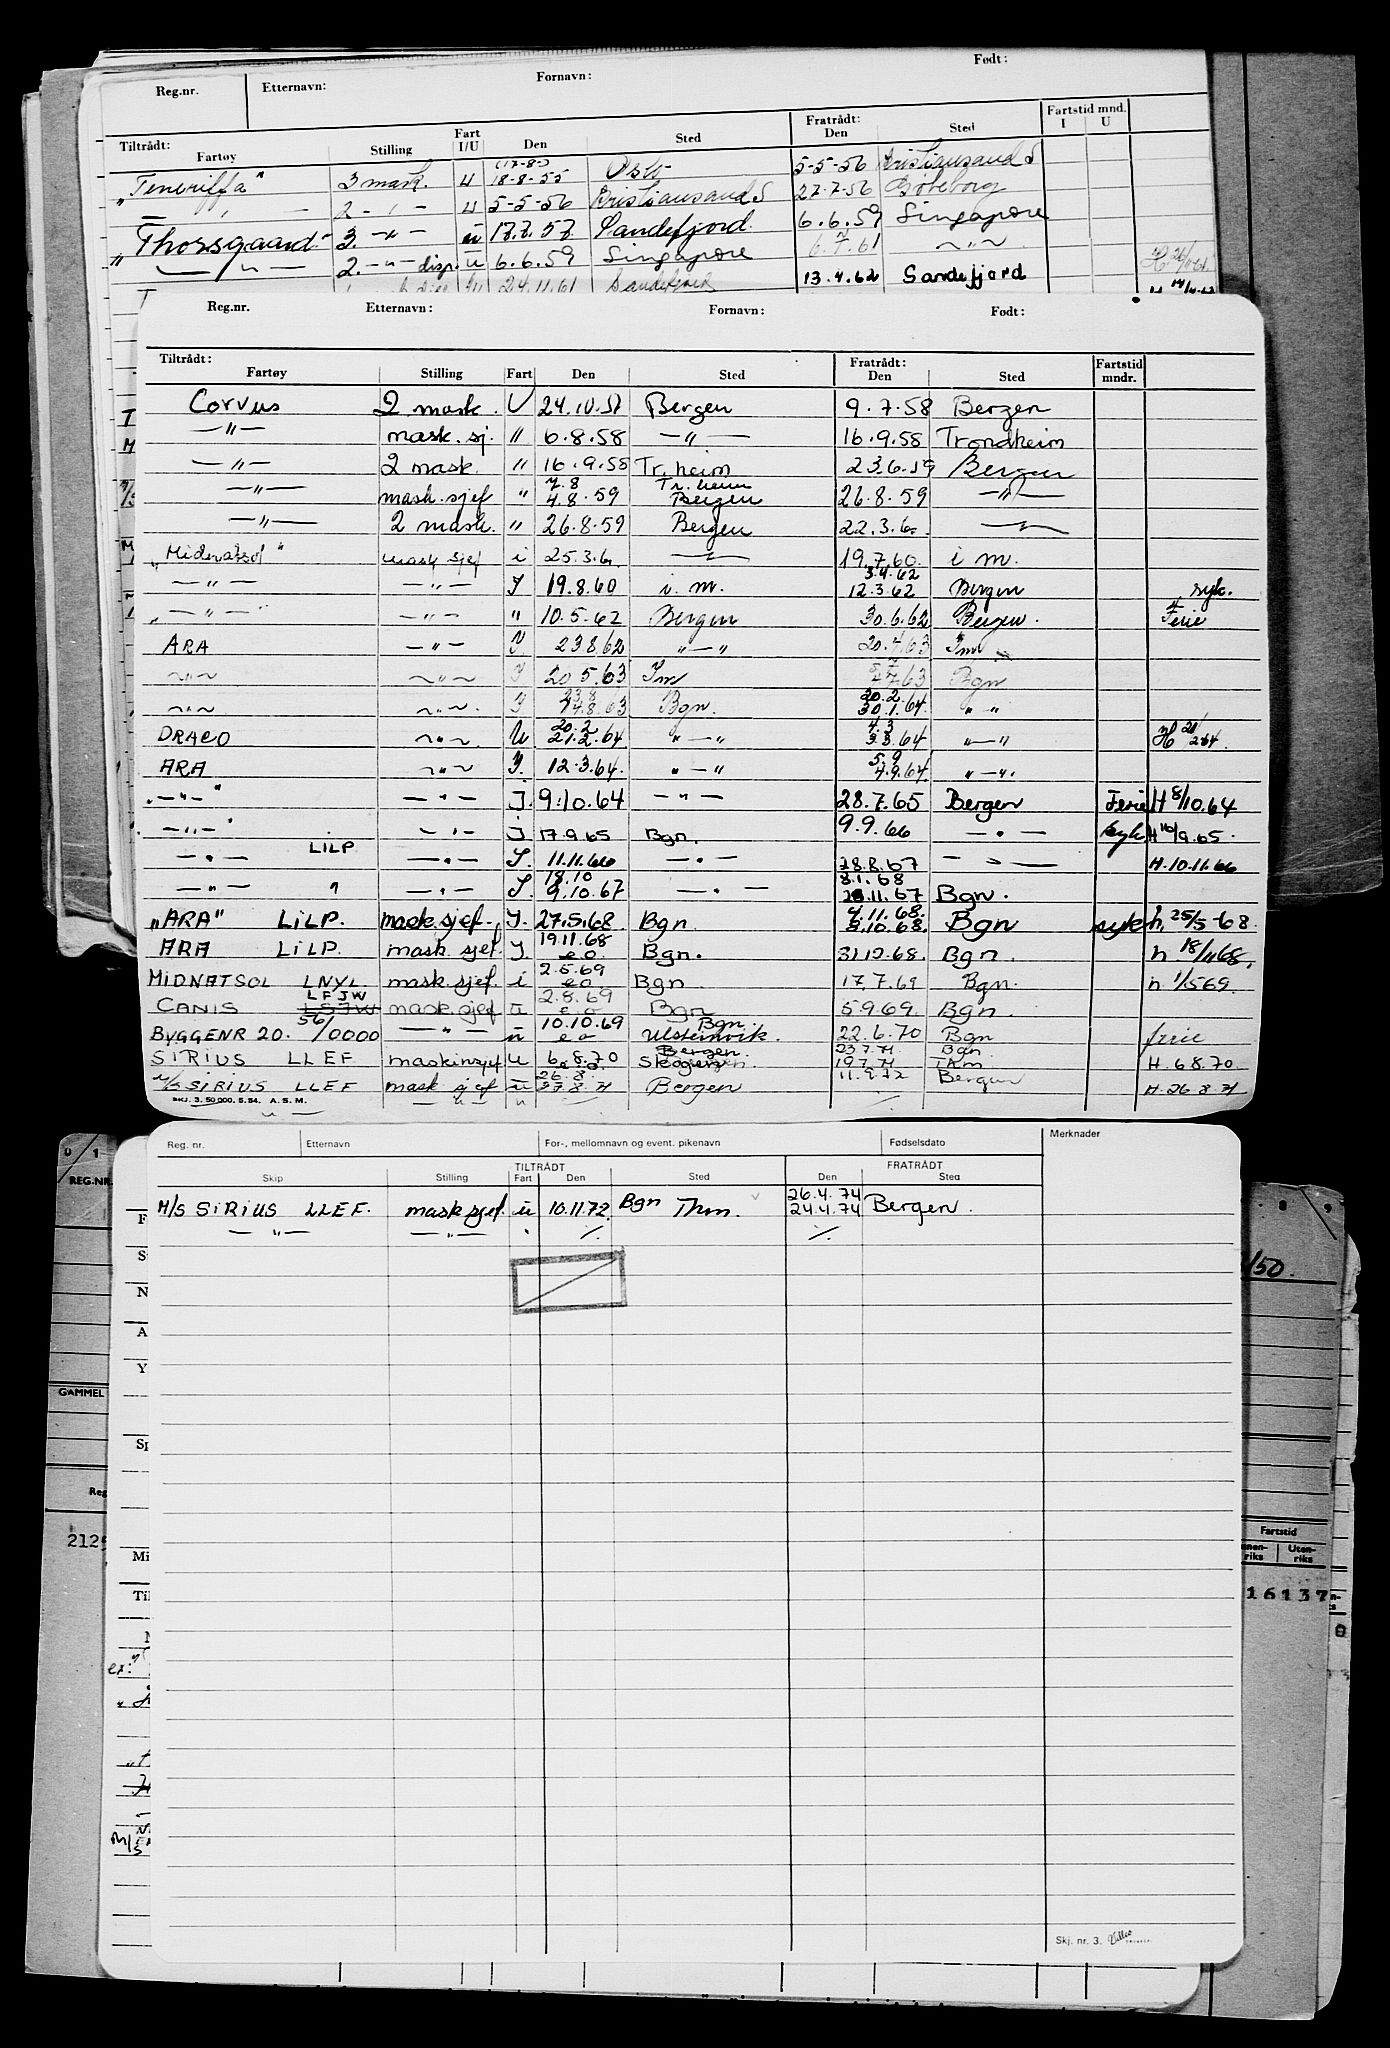 Reg.nr. Etternavn: Fornavn: Født:
Tiltrådt: Fratrådt: Fartstid mnd.
Fartøy Stilling Fart I/U Den Sted Den Sted I U
„Teneriffa" 3 mask. u 18-8-55 Oslo 5-5-56 Kristiansand S
— " — 2 - " - u 5-5-56 Kristiansand S 27-7-56 Göteborg
„Thorsgaard" 3. -"- u 17.7.57 Sandefjord 6.6.59 Singapore
— " — 2. -"- disp. u 6.6.59 Singapore 6.7.61 ~"~
24.11.61 Sandefjord 13.4.62 Sandefjord
Reg.nr. Etternavn: Fornavn: Født:
Tiltrådt: Fratrådt:
Fartøy Stilling Fart Den Sted Den Sted Fartstid mndr.
Corvus 2 mask. U 24.10.57 Bergen 9.7.58 Bergen
—"— mask.sj. " 6.8.58 —"— 16.9.58 Trondheim
—"— 2 mask. " 16.9.58 Tr.heim 23.6.59 Bergen
7.8 Tr.heim
—"— mask.sjef " 4.8.59 Bergen 26.8.59 —"—
—"— 2 mask. " 26.8.59 Bergen 22.3.60 —"—
„Midnatsol" mask sjef i 25.3.60 —"— 19.7.60 i m.
3.4.62
—"— —"— I 19.8.60 i. m. 12.3.62 Bergen syk.
—"— —"— " 10.5.62 Bergen 30.6.62 Bergen. Ferie
ARA —"— I. 23 8 62 "—" 20.4.63 Im
~"~ ~"~ I 20 5.63 Im 4.7.63 Bgn
23.8 20.2
~"~ ~"~ I 14.8.63 Bgn. 30.1.64. " "
20.2 4.3
DRACO ~"~ U 21.2.64 "—" 3.3.64 "—" H 20/2 64.
5.9
ARA ~"~ I. 12.3.64. "—" 4.9.64. "—".
„—"—" —"— I. 9.10.64 —"— 28.7.65 Bergen Ferie H 8/10.64
—"— —"— I 17.9.65 Bgn. 9.9.66 —"— syk H 16/9.65.
—"— LILP —"— I. 11.11.66 —"— 28.8.67 —"— H. 10.11.66
18.10 8.1.68
—"— " —"— I. 9.10.67 —"— 28.11.67 Bgn.
4.11.68.
„ARA" LILP. mask.sjef. I. 27.5.68 Bgn 3.10.68. Bgn syk h. 25/5-68.
19.11.68
ARA LILP. mask. sjef. I. e o Bgn. 31.12.68. Bgn. h 18/11 68.
2.5.69
MIDNATSOL LNYL. mask.sjef. i e o Bgn 17.7.69 Bgn. h. 1/5 69.
LFJW 2.8.69
CANIS LSJW mask.sjef u e o Bgn 5 9 69. Bgn.
10.10.69 Bgn.
BYGGENR 20. 56/0000 —"— u e o Ulsteinvik. 22.6.70 Bgn ferie
6.8.70 Bergen. 23.7.71. Bgn.
SIRIUS LLEF maskinsjef u e o Skogen 19.7.71 H. 6.8.70.
26.8.
M/S SIRIUS LLEF mask sjef u 27.8.71 Bergen 11.9.72 Bergen H. 26.8.71
SKJ. 3. 50 000. 5.54. A.S.M.
Reg. nr. Etternavn For-, mellomnavn og event. pikenavn Fødselsdato Merknader
TILTRÅDT FRATRÅDT
Skip Stilling Fart Den Sted Den Sted
26.4.74
M/S SIRIUS LLEF. mask sjef. u 10.11.72. Bgn Thm. 24.4.74 Bergen
—"— —"— " ./. ./.
Skj. nr. 3.
0 1
REG.NR.
GAMMEL
Reg
2125
ex:
M/S
8 9
/50.
Fartstid
Uten-riks
16137